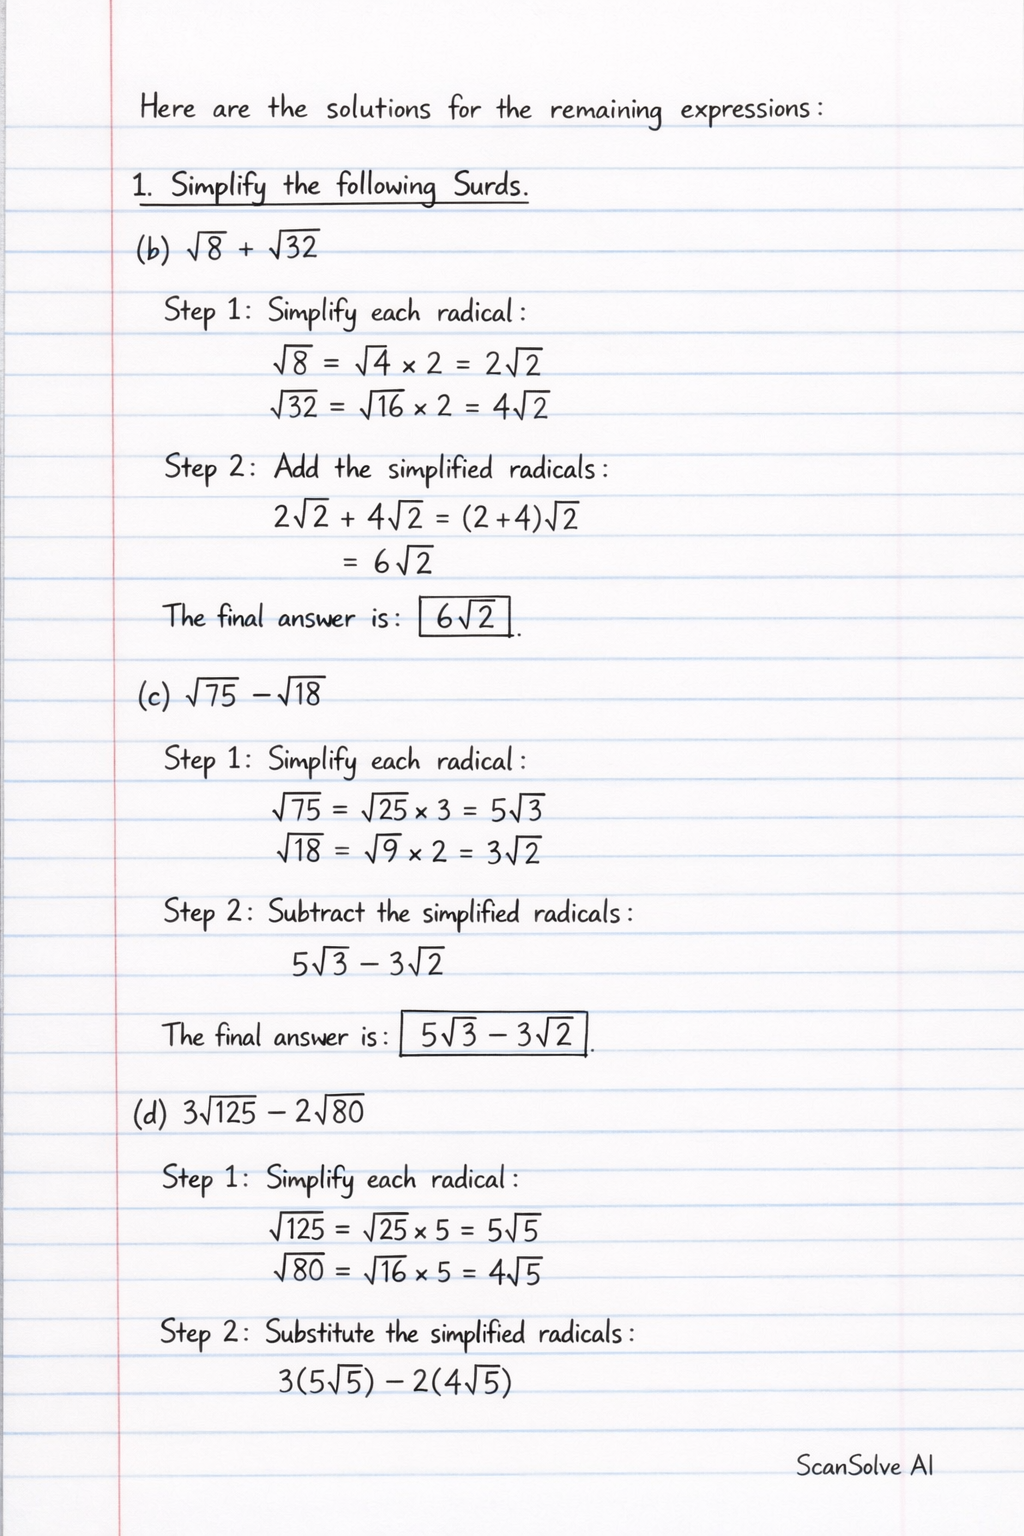 Here are the solutions for the remaining expressions:
1. Simplify the following Surds.
(b) √8 + √32
Step 1: Simplify each radical:
√8 = √4 × 2 = 2√2
√32 = √16 × 2 = 4√2
Step 2: Add the simplified radicals:
2√2 + 4√2 = (2+4)√2
= 6√2
The final answer is: 6√2.
(c) √75 − √18
Step 1: Simplify each radical:
√75 = √25 × 3 = 5√3
√18 = √9 × 2 = 3√2
Step 2: Subtract the simplified radicals:
5√3 − 3√2
The final answer is: 5√3 − 3√2.
(d) 3√125 − 2√80
Step 1: Simplify each radical:
√125 = √25 × 5 = 5√5
√80 = √16 × 5 = 4√5
Step 2: Substitute the simplified radicals:
3(5√5) − 2(4√5)
ScanSolve AI